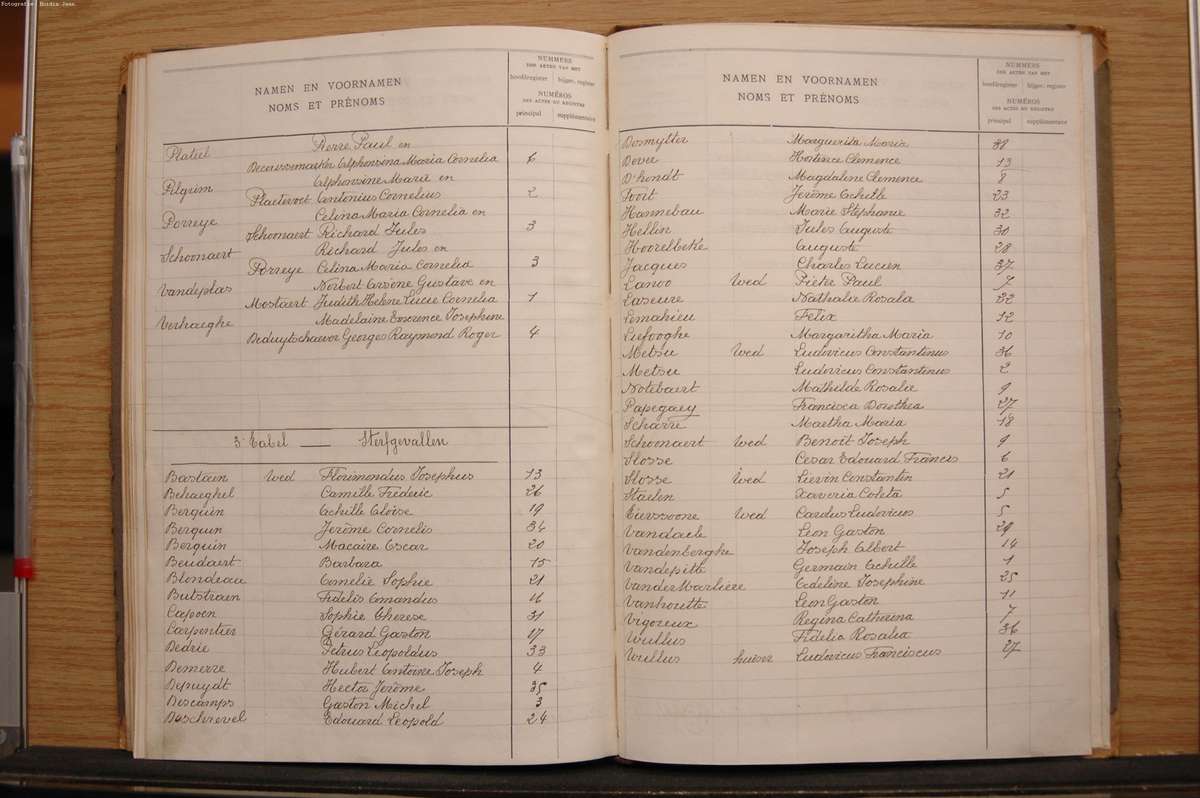 Fotografie: Houdin Jean
NAMEN EN VOORNAMEN
NOMS ET PRÉNOMS
NUMMERS
DER AKTEN VAN HET
hoofdregister bijgev. register
NUMÉROS
DES ACTES DU REGISTRE
principal supplémentaire
Platiel Pierre Paul en
Deceressemaeker Alphonsina Maria Cornelia 6
Pilgrim Alphonsine Marie en
Plaetevoet Antonius Cornelius 2
Porreye Celina Maria Cornelia en
Schoonaert Richard Jules 3
Schoonaert Richard Jules en
Porreye Celina Maria Cornelia 3
Vandeplas Norbert Arsène Gustave en
Mostaert Judith Helene Lucie Cornelia 1
Verhaeghe Madelaine Emerence Josephine
Beduytschaever Georges Raymond Roger 4
3e Tabel — Sterfgevallen
Bastaen Wed Florimondus Josephus 13
Behaeghel Camille Fréderic 26
Berquin Achille Eloïse 19
Berquin Jerôme Cornelis 34
Berquin Macaire Oscar 20
Beudaert Barbara 15
Blondeau Amelie Sophie 21
Butstraen Fidelis Amandus 16
Capoen Sophie Therese 31
Carpentier Gérard Gaston 17
Dedrie Petrus Leopoldus 33
Demerre Hubert Antoine Joseph 4
Depuydt Hector Jerôme 35
Descamps Gaston Michel 3
Deschrevel Edouard Leopold 24
NAMEN EN VOORNAMEN
NOMS ET PRÉNOMS
NUMMERS
DER AKTEN VAN HET
hoofdregister bijgev. register
NUMÉROS
DES ACTES DU REGISTRE
principal supplémentaire
Desmytter Marguerita Maria 38
Dover Hortence Clemence 13
D'hondt Magdalene Clemence 8
Foort Jerôme Achille 23
Hannebau Marie Stephanie 32
Hellin Jules Auguste 30
Hoorelbeke Auguste 28
Jacques Charles Lucien 37
Lanoo Wed Pieter Paul 7
Laseure Nathalie Rosala 22
Lemahieu Felix 12
Liefooghe Margaritha Maria 10
Metsu Wed Ludovicus Constantinus 36
Metsu Ludovicus Constantinus 2
Notebaert Mathilde Rosalie 9
Papegaey Francisca Dorothea 27
Scharre Martha Maria 18
Schoonaert Wed Benoit Joseph 9
Slosse Cesar Edouard Francis 6
Slosse Wed Lievin Constantin 21
Staelen Xaveria Coleta 5
Tierssoone Wed Carolus Ludovicus 5
Vandaele Leon Gaston 29
Vandenberghe Joseph Albert 14
Vandepitte Germain Achille 1
VanderMarlière Adeline Josephine 25
Vanhoutte Leon Gaston 11
Vigoreux Regina Catherina 7
Wullus Fidelia Rosalia 36
Wullus huisvr Ludovicus Franciscus 27